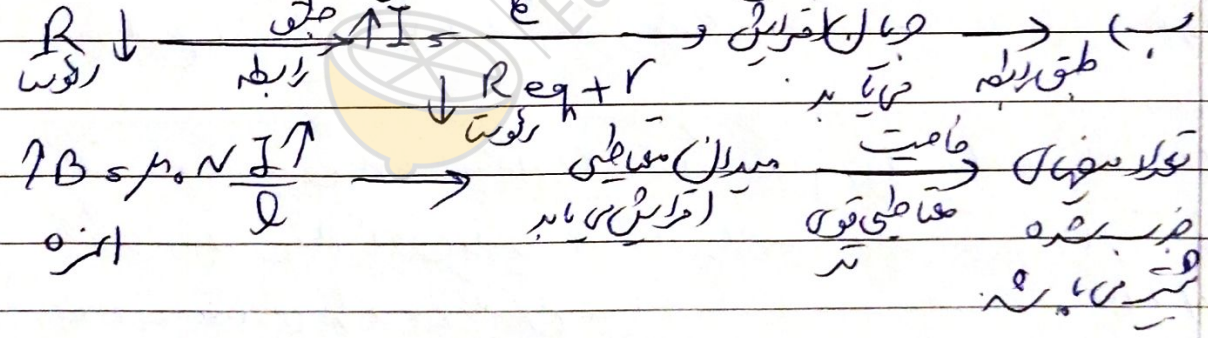 ب) R↓ رئوستا → طبق رابطه ↑I = e / ↓Req + r رئوستا → جریان افزایش می یابد → طبق رابطه
↑B = μ₀ N I↑ / l → میدان مغناطیسی افزایش می یابد → خاصیت مغناطیسی قوی تر → تعداد
شده
می باشد.